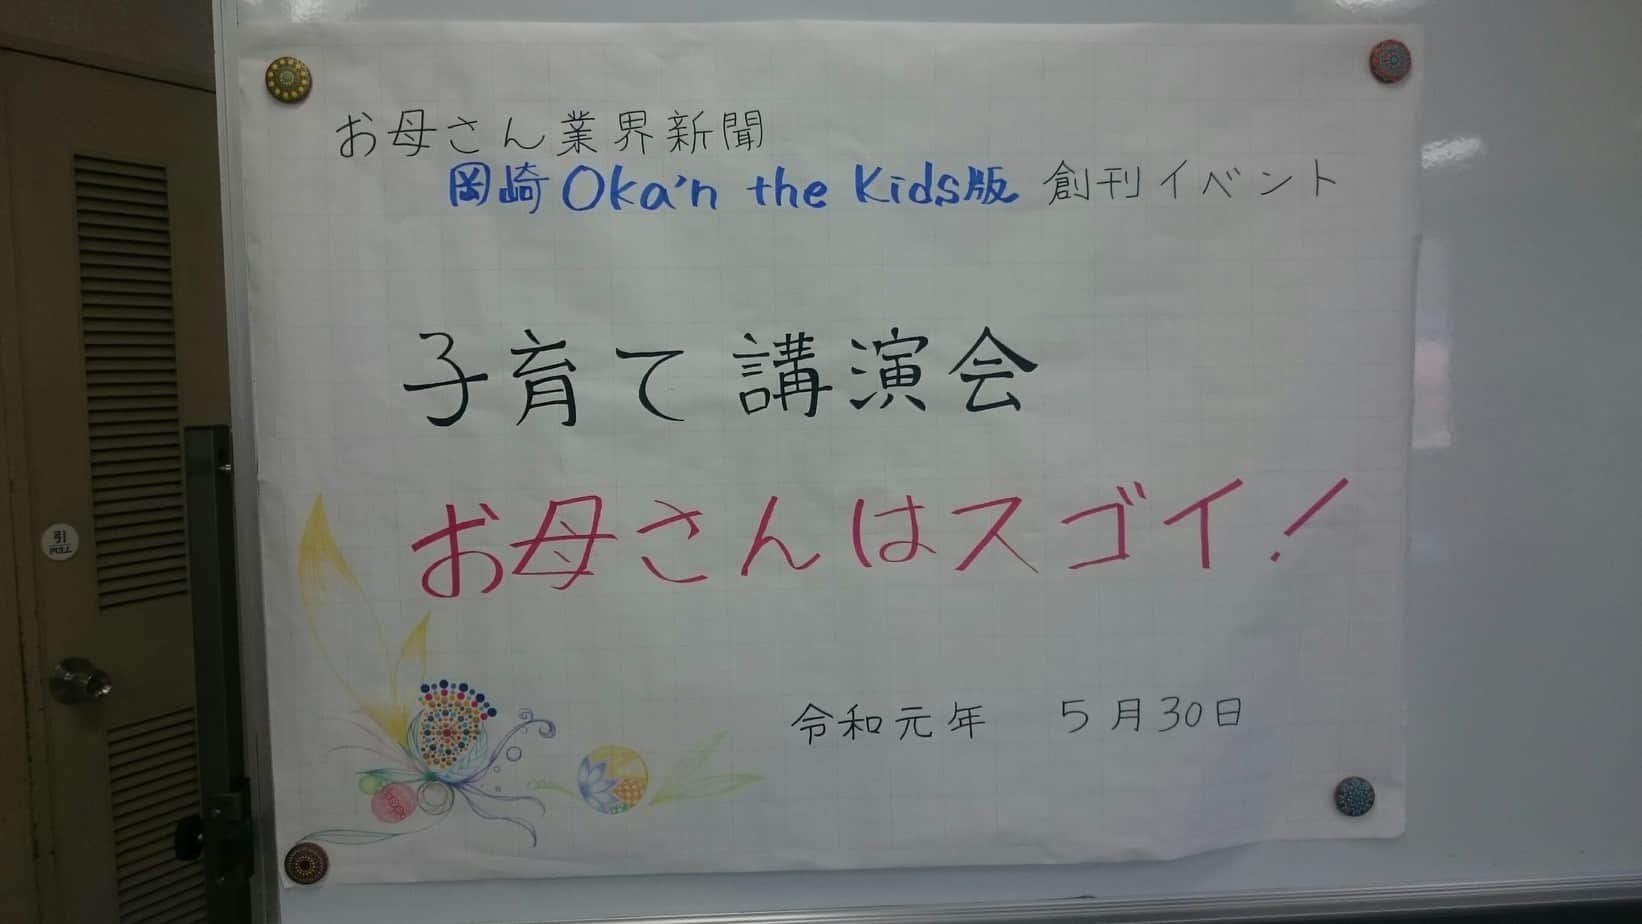 お母さん業界新聞
岡崎Oka'n the Kids版 創刊イベント
子育て講演会
お母さんはスゴイ!
令和元年 5月30日
引
PULL